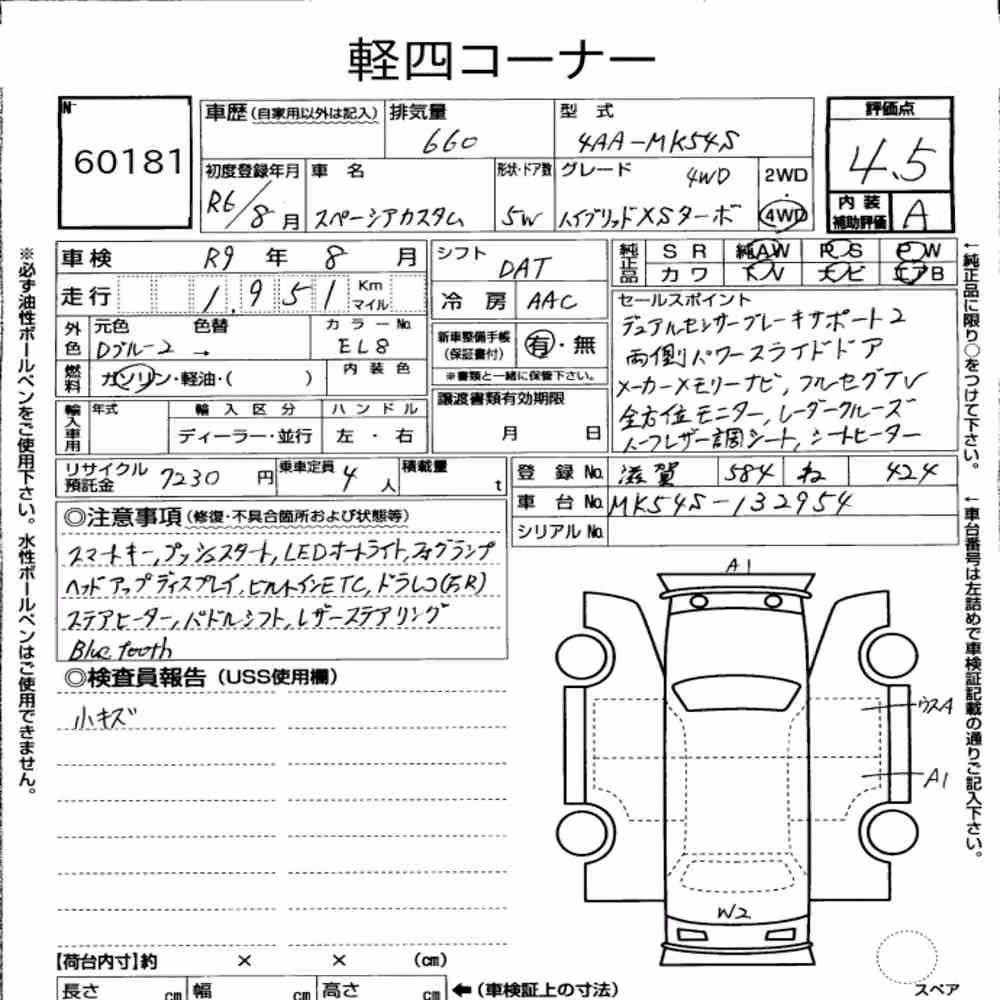 軽四コーナー
No
60181
車歴(自家用以外は記入) 排気量 660
型式 4AA-MK54S
評価点 4.5
内装補助評価 A
初度登録年月 R6/8月
車名 スペーシアカスタム
形状・ドア数 5W
グレード 4WD ハイブリッドXSターボ
2WD・4WD
車検 R9年 8月
走行 1,951 Km マイル
シフト DAT
冷房 AAC
純正品 SR 純AW PS PW
カワ TV ナビ エアB
外色 元色 Dブルー2 → 色替
カラーNo. EL8
内装色
燃料 ガソリン・軽油・( )
新車整備手帳(保証書付) 有・無
※書類と一緒に保管下さい。
譲渡書類有効期限 月 日
輸入車用 年式 輸入区分 ハンドル
ディーラー・並行 左・右
セールスポイント
デュアルセンサーブレーキサポート2
両側パワースライドドア
メーカーメモリーナビ,フルセグTV
全方位モニター,レーダークルーズ
ハーフレザー調シート,シートヒーター
リサイクル預託金 7230円
乗車定員 4人
積載量 t
登録No. 滋賀 584 ね 424
車台No. MK54S-132954
シリアルNo.
◎注意事項(修復・不具合箇所および状態等)
スマートキー,プッシュスタート,LEDオートライト,フォグランプ
ヘッドアップディスプレイ,ビルトインETC,ドラレコ(F.R)
ステアヒーター,パドルシフト,レザーステアリング
Blue tooth
◎検査員報告(USS使用欄)
小キズ
A1
ウスA
A1
W2
スペア
【荷台内寸】約 × × (cm)
長さ cm 幅 cm 高さ cm ←(車検証上の寸法)
※必ず油性ボールペンをご使用下さい。水性ボールペンはご使用できません。
←純正品に限り○をつけて下さい。
←車台番号は左詰めで車検証記載の通りご記入下さい。